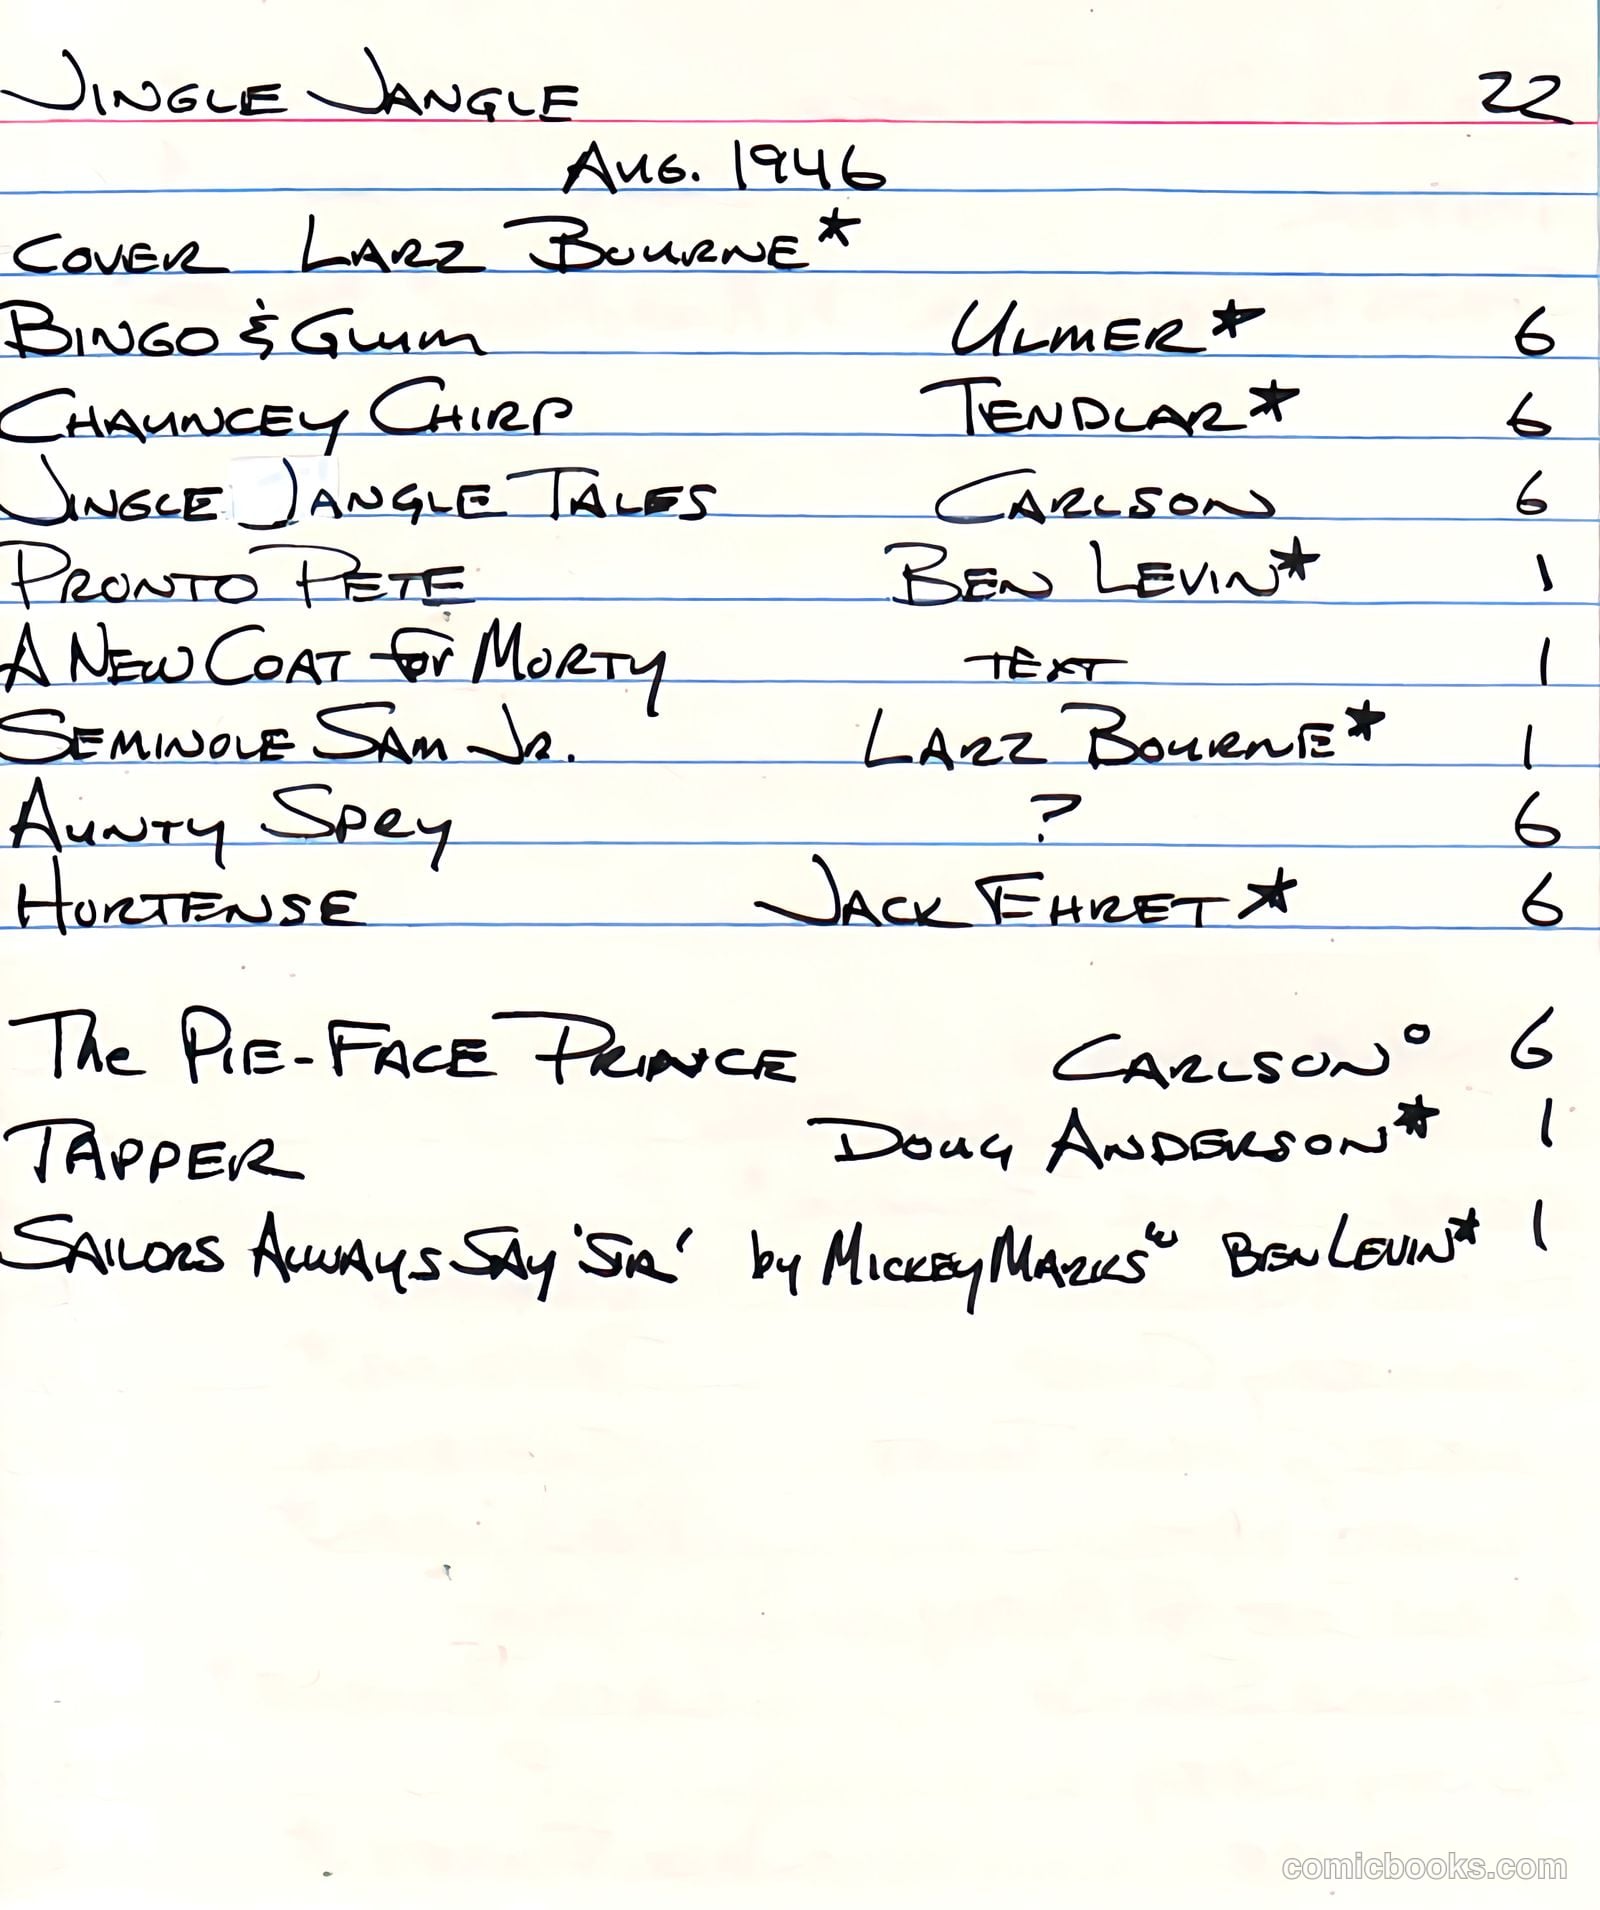 JINGLE JANGLE 22
AUG. 1946
COVER LARZ BOURNE*
BINGO & GLUM ULMER* 6
CHAUNCEY CHIRP TENDLAR* 6
JINGLE JANGLE TALES CARLSON 6
PRONTO PETE BEN LEVIN* 1
A NEW COAT for MORTY TEXT 1
SEMINOLE SAM JR. LARZ BOURNE* 1
AUNTY SPRY ? 6
HORTENSE JACK EHRET* 6
The PIE-FACE PRINCE CARLSON° 6
TAPPER DOUG ANDERSON* 1
SAILORS ALWAYS SAY 'SIR' by MICKEY MARKS ω BEN LEVIN* 1
comicbooks.com